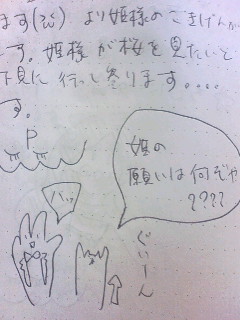 ます より姫様のごきげんが
す。姫様が桜を見たいと
下見に行って参ります....
す。
P
姫の
願いは何ぞや
????
バッ
ぐいーん